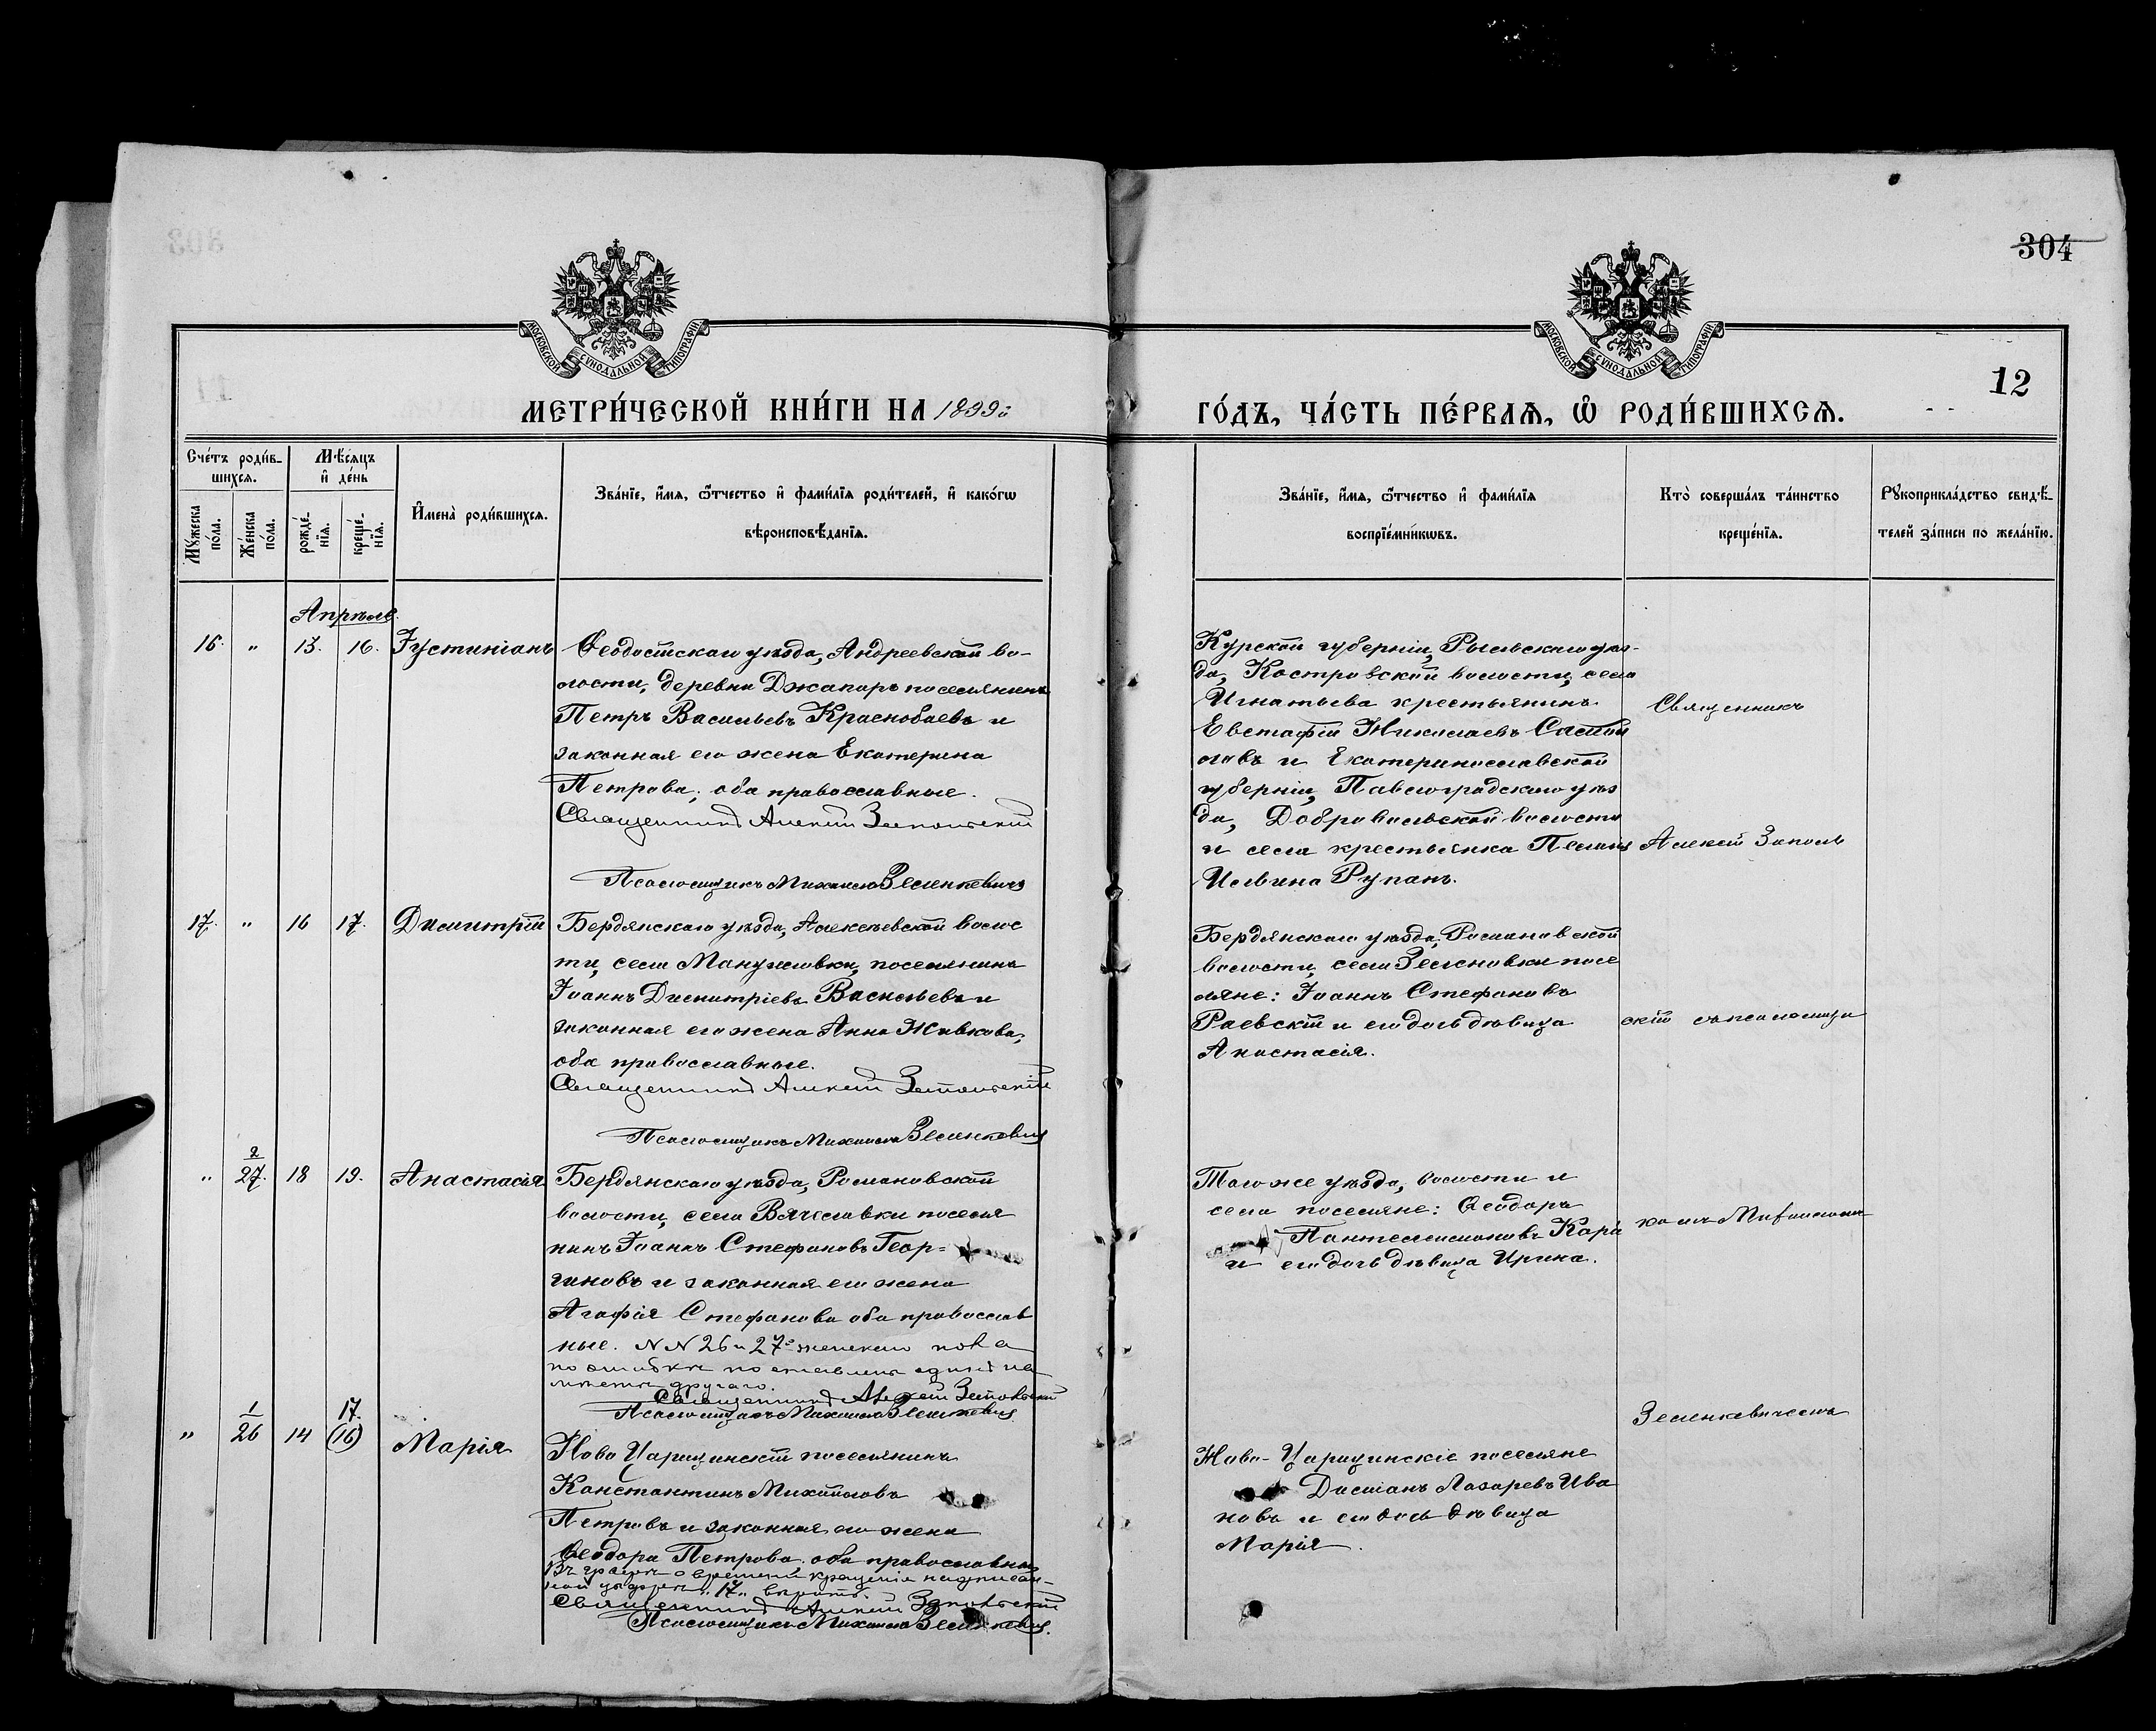 304
12
МОСКОВСКОЙ СѴНОДАЛЬНОЙ ТИПОГРАФІИ
МОСКОВСКОЙ СѴНОДАЛЬНОЙ ТИПОГРАФІИ
МЕТРИ́ЧЕСКОЙ КНИ́ГИ НА 1899й
ГО́ДЪ, ЧА́СТЬ ПЕ́РВАѦ, Ѡ҆ РОДИ́ВШИХСѦ.
Сче́тъ роди́в-
шихсѧ.
Мꙋ́жеска по́ла.
Же́нска по́ла.
Мѣ́сяцъ
и҆ де́нь
рожде́-нїѧ.
креще́-нїѧ.
И҆мена̀ роди́вшихсѧ.
Зва́нїе, и҆́мѧ, ѻ҆́тчество и҆ фами́лїѧ роди́телей, и҆ како́гѡ
вѣроисповѣ́данїѧ.
Зва́нїе, и҆́мѧ, ѻ҆́тчество и҆ фами́лїѧ
воспрїе́мникѡвъ.
Кто̀ соверша́лъ та́инство
креще́нїѧ.
Рꙋкоприкла́дство свидѣ́-
телей за́писи по жела́нїю.
Апрѣль.
16. „ 13. 16. Іустиніанъ
Ѳеодосійскаго уѣзда, Андреевской во-
лости, деревни Джапаръ поселянинъ
Петръ Васильевъ Краснобаевъ и
законная его жена Екатерина
Петрова; оба православные.
Священникъ Алексій Запольскій
Псаломщикъ Михаилъ Зеленкевичъ
Курской губерніи, Рыльскаго уѣз-
да, Костровской волости, села
Игнатьева крестьянинъ
Евстафій Николаевъ
ловъ и Екатеринославской
губерніи, Павлоградскаго уѣз
да, Добровольской волости
и села крестьянка
Ильина Рупанъ.
Священникъ
Алексій Заполь
скій съ псаломщи
комъ Михаиломъ
Зеленкевичемъ
17. „ 16 17. Димитрій
Бердянскаго уѣзда, Алексѣевской волос
ти, села Мануйловки, поселянинъ
Іоаннъ Димитріевъ Васильевъ и
законная его жена Анна Живкова,
оба православные.
Священникъ Алексій Запольскій
Псаломщикъ Михаилъ Зеленкевичъ
Бердянскаго уѣзда, Романовской
волости, села Зеленовки посе
ляне: Іоаннъ Стефановъ
Раевскій и его дочь дѣвица
Анастасія.
„ 2/27. 18 19. Анастасія
Бердянскаго уѣзда, Романовской
волости, села Вячеславки поселя
нинъ Іоаннъ Стефановъ Геор=
гиновъ и законная его жена
Агафія Стефанова оба православ
ные. NN 26 и 27й женскаго пола
по ошибкѣ поставлены одинъ на
мѣсто другаго.
Священникъ Алексій Запольскій
Псаломщикъ Михаилъ Зеленкевичъ
Того же уѣзда, волости и
села поселяне: Ѳеодоръ
Пантелеимоновъ Кара
и его дочь дѣвица Ирина.
„ 1/26 14 17. (16) Марія
Ново Царицинскій поселянинъ
Константинъ Михайловъ
Петровъ и законная его жена
Ѳеодора Петрова. оба православные
Въ графѣ о времени крещенія надписан-
ной цифрѣ „17„ вѣрить.
Священникъ Алексій Запольскій
Псаломщикъ Михаилъ Зеленкевичъ.
Ново-Царицинскіе поселяне
Даміанъ Лазаревъ Ива
новъ и его дочь дѣвица
Марія.